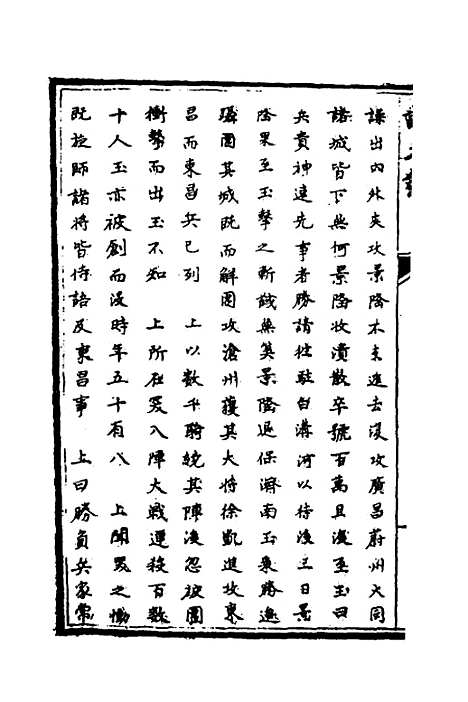 謙出內外夾攻景隆不支進去復攻廣昌蔚州大同
諸城皆下無何景隆收潰散卒號百萬且復至玉曰
兵貴神速先事者勝請往駐白溝河以待後三日景
隆果至玉擊之斬馘無筭景隆退保濟南玉乘勝進
躡圍其城既而解圍攻滄州獲其大將徐凱進攻東
昌而東昌兵已列 上以數千騎繞其陣後忽被圍
衝擊而出玉不知 上所在突入陣大戰連殺百數
十人玉亦被創而沒時年五十有八 上聞哭之慟
既旋師諸將皆侍語及東昌事 上曰勝負兵家常